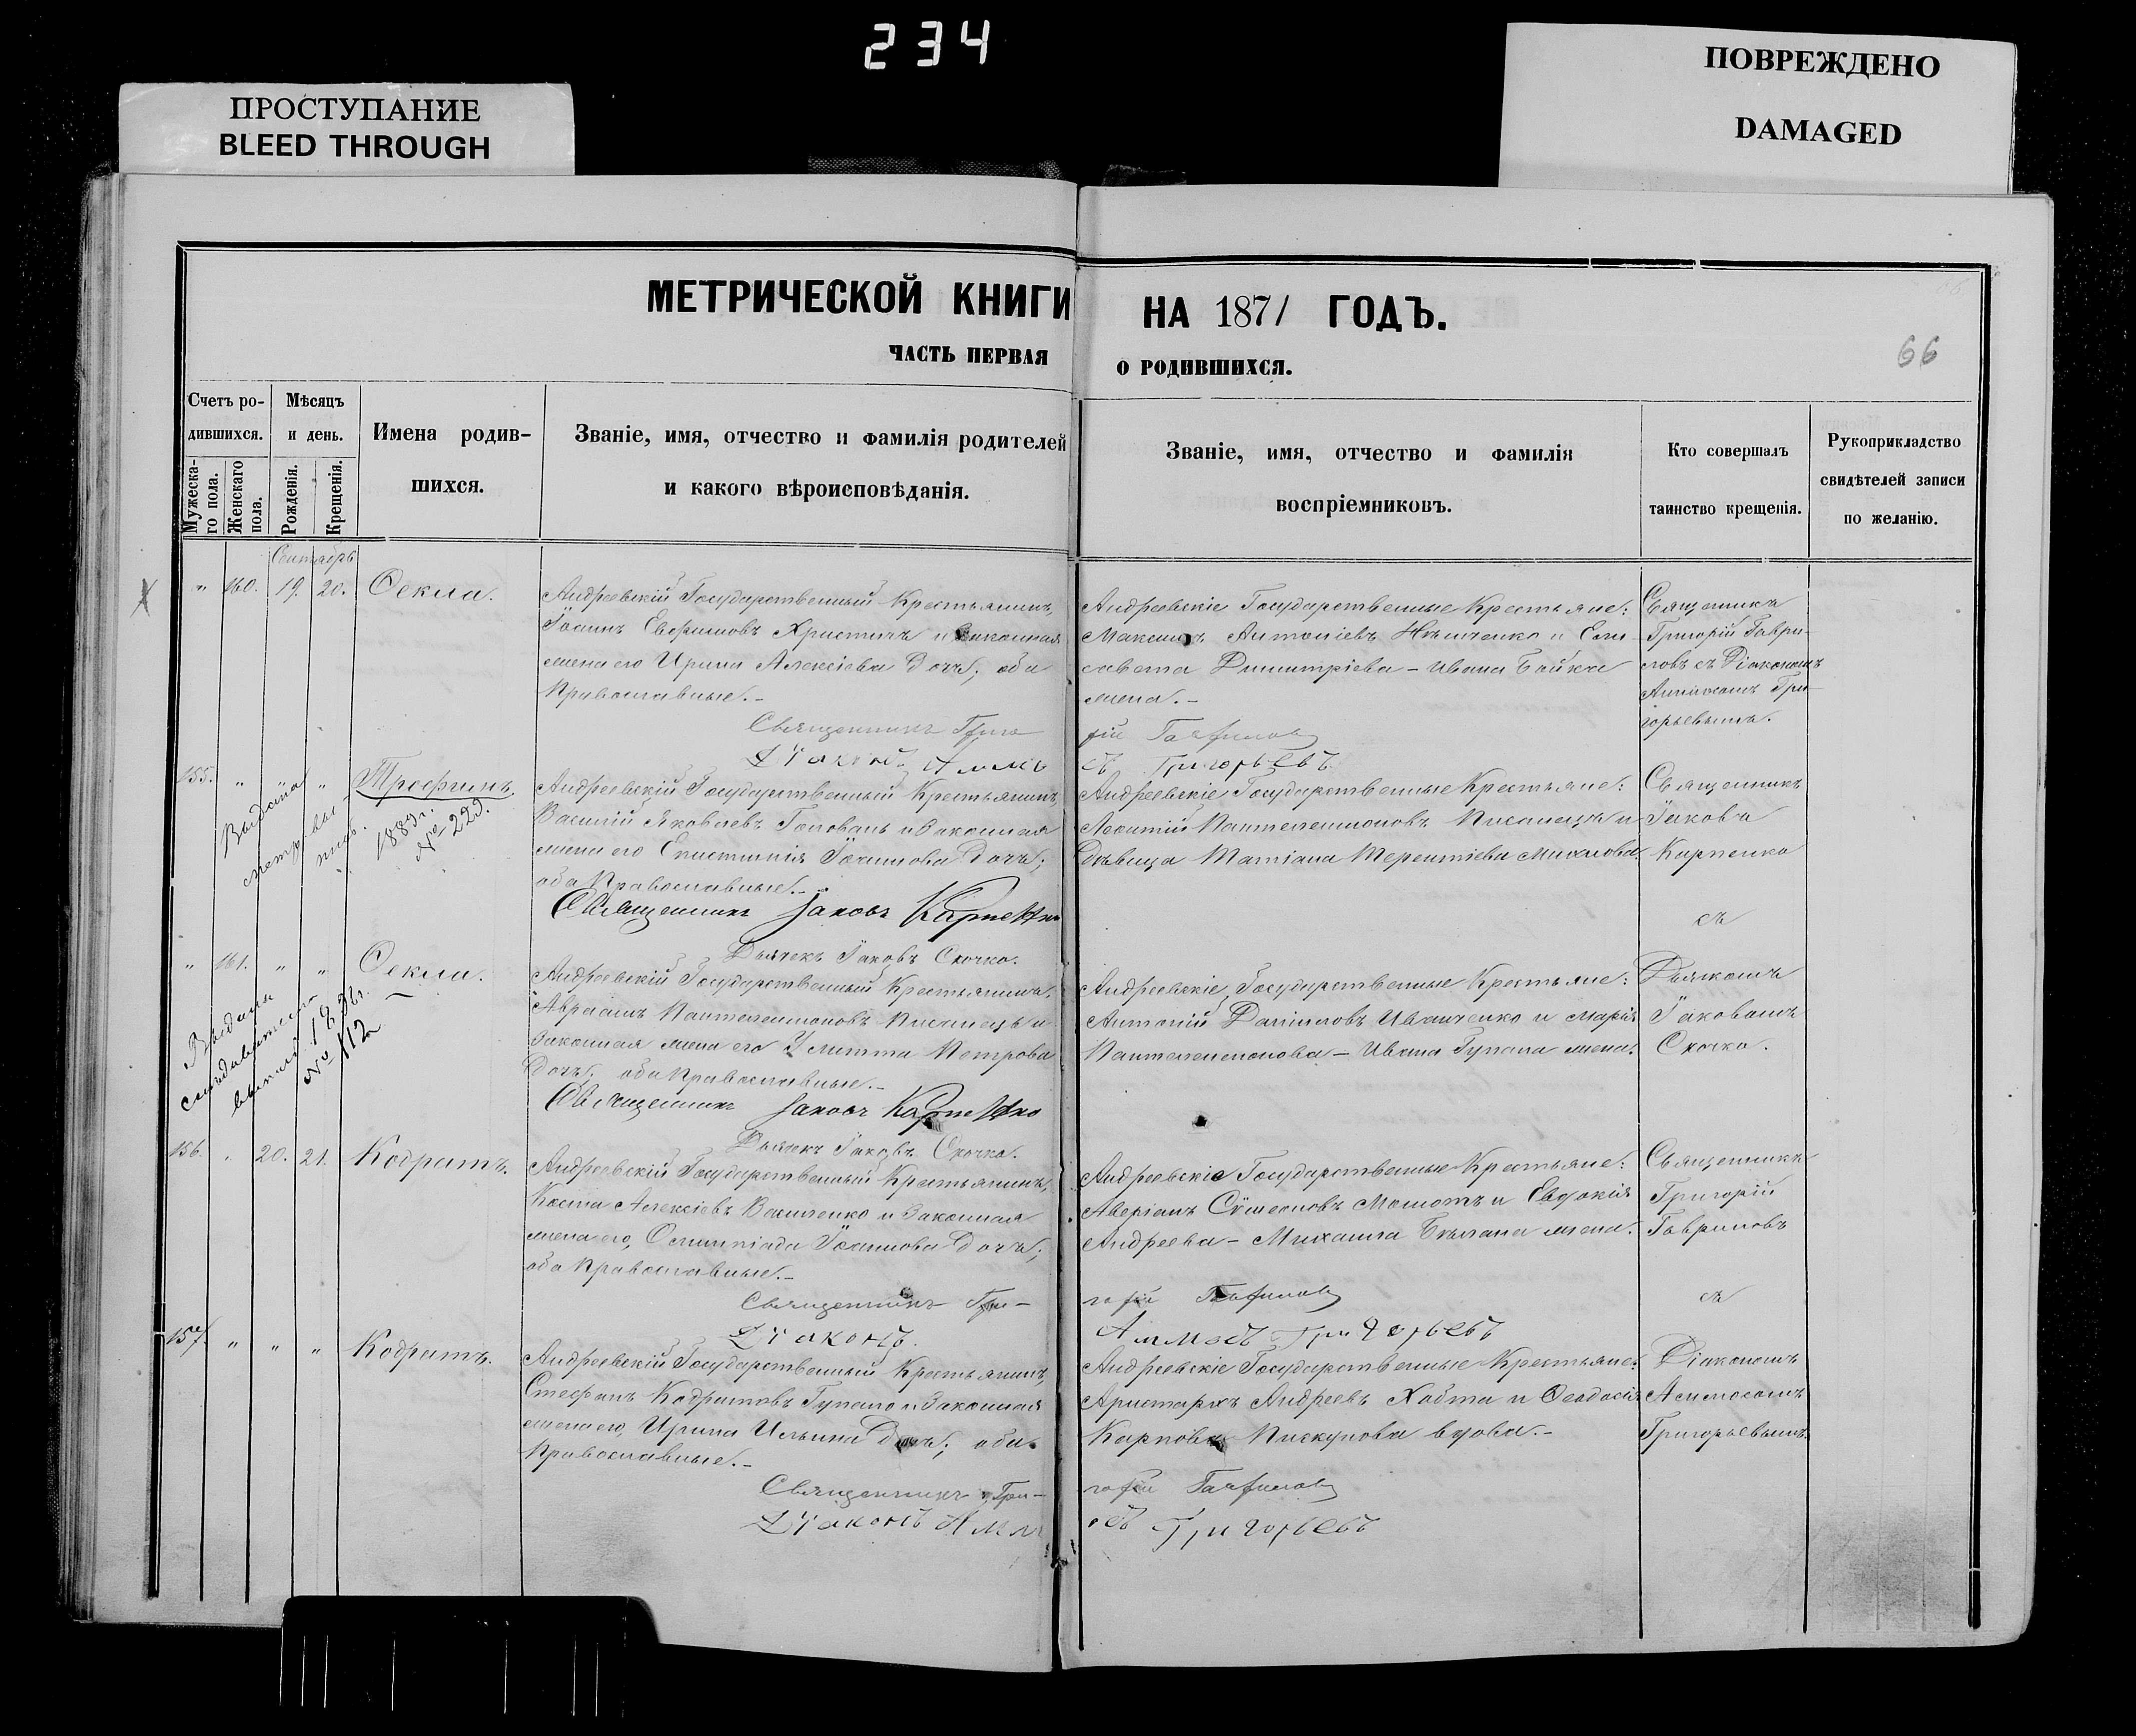 234
ПРОСТУПАНИЕ
BLEED THROUGH
ПОВРЕЖДЕНО
DAMAGED
МЕТРИЧЕСКОЙ КНИГИ НА 1871 ГОДЪ.
66
ЧАСТЬ ПЕРВАЯ О РОДИВШИХСЯ.
Счетъ ро-
дившихся.
Мужеска-
го пола.
Женскаго
пола.
Мѣсяцъ
и день.
Рожденія.
Крещенія.
Имена родив-
шихся.
Званіе, имя, отчество и фамилія родителей
и какого вѣроисповѣданія.
Званіе, имя, отчество и фамилія
воспріемниковъ.
Кто совершалъ
таинство крещенія.
Рукоприкладство
свидѣтелей записи
по желанію.
Сентябрь
" 160. 19. 20. Ѳекла.
Андреевскій Государственный Крестьянинъ,
Іоаннъ Евфимовъ Христичъ и Законная
жена его Ирина Алексіева дочь; оба
Православные.-
Андреевскіе Государственные Крестьяне:
Максимъ Антоніевъ и Ели-
савета Димитріева - Ивана Бойка
жена.-
Священникъ
Григорій Гаври-
ловъ съ Діакономъ
Аммосомъ Гри-
горьевымъ.
Священникъ Григорій Гавриловъ
Діаконъ Аммосъ Григорьевъ
155. " " " Трофимъ.
Выдана
метр. вы-
пись.
1889 г.
№ 229.
Андреевскій Государственный Крестьянинъ,
Василій Яковлевъ Головань и Законная
жена его Епистимія Іоакимова дочь;
оба Православные.-
Андреевскіе Государственные Крестьяне:
Леонтій Пантелеимоновъ Писанецъ и
Дѣвица Татіана Терентіева
Священникъ
Іаковъ
Карпенко
съ
Священникъ Іаковъ Карпенко
Дьячекъ Іаковъ Скочко.
" 161. " " Ѳекла.
Выдано
№ 112
Андреевскій Государственный Крестьянинъ,
Авраамъ Пантелеимоновъ Писанецъ и
Законная жена его Улитта Петрова
дочь; оба Православные.-
Андреевскіе Государственные Крестьяне:
Антоній Даніиловъ Иванченко и Марія
Пантелеимонова - Ивана Гупала жена.
Дьячкомъ
Іаковомъ
Скочко.
Священникъ Іаковъ Карпенко
Дьячекъ Іаковъ Скочко.
156. " 20. 21. Кодратъ.
Андреевскій Государственный Крестьянинъ,
Косма Алексіевъ Василенко и Законная
жена его, Олимпіада Іоакимова дочь;
оба Православные.-
Андреевскіе Государственные Крестьяне:
Аверіанъ Сѵмеоновъ и Евдокія
Андреева - Михаила жена.
Священникъ
Григорій
Гавриловъ
съ
Священникъ Григорій Гавриловъ
Діаконъ Аммосъ Григорьевъ
157. " " " Кодратъ.
Андреевскій Государственный Крестьянинъ,
Стефанъ Кодратовъ Гупало и Законная
жена его, Ирина Ильина дочь; оба
Православные.-
Андреевскіе Государственные Крестьяне:
Аристархъ Андреевъ Хобта и Ѳеодосія
Карпова Пискунова вдова.-
Діакономъ
Аммосомъ
Григорьевымъ.
Священникъ Григорій Гавриловъ
Діаконъ Аммосъ Григорьевъ